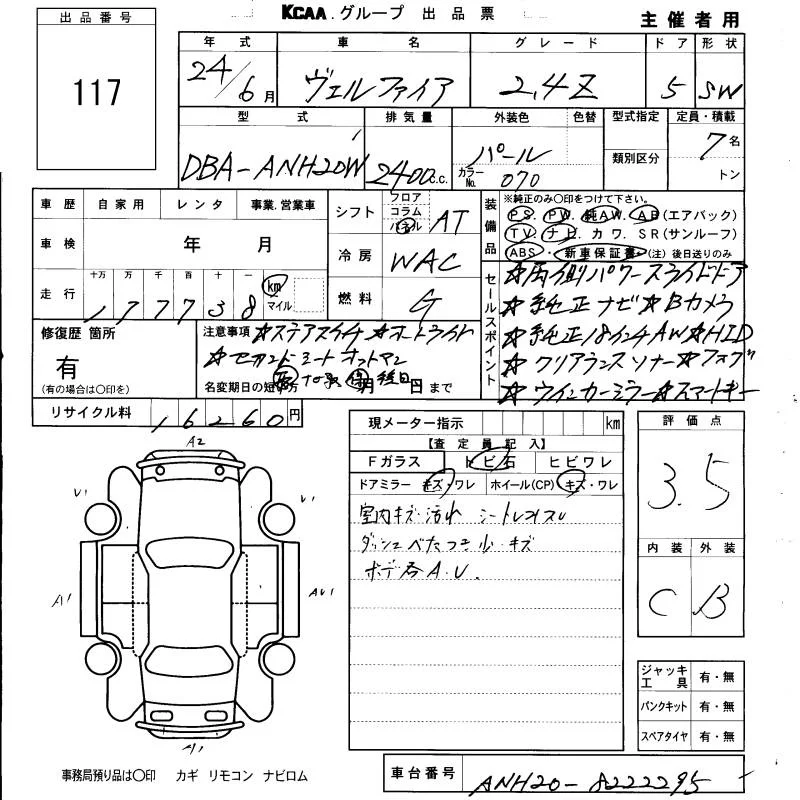 KCAA.グループ 出品票
主催者用
出品番号
117
年式 車名 グレード ドア 形状
24/6月 ヴェルファイア 2,4Z 5 SW
型式 排気量 外装色 色替 型式指定 定員・積載
DBA-ANH20W 2400c.c. パール カラーNo. 070 類別区分 7名
トン
車歴 自家用 レンタ 事業.営業車
車検 年 月
走行 十万 万 千 百 十 一
177738 km マイル
シフト フロア コラム パネル AT
冷房 WAC
燃料 G
装備品 ※純正のみ○印をつけて下さい。
PS. PW. 純AW. AB(エアバック)
TV. ナビ. カワ. SR(サンルーフ)
ABS・新車保証書(注)後日送りのみ
セールスポイント
☆両側パワースライドドア
☆純正ナビ☆Bカメラ
☆純正18インチAW☆HID
☆クリアランスソナー☆フォグ
☆ウインカーミラー☆スマートキー
修復歴 箇所
有
(有の場合は○印を)
注意事項 ☆ステアスイッチ ☆オートライト
☆セカンドシートオットマン
名変期日の短い方 月 日まで
リサイクル料 16260円
現メーター指示 km
【査定員記入】
Fガラス トビ石 ヒビワレ
ドアミラー キズ・ワレ ホイール(CP) キズ・ワレ
室内キズ・汚れ シートレスレ
ダッシュベたつき少・キズ
ボデ各A.U.
評価点
3.5
内装 外装
C B
A2
U1
U1
A1
AU1
A1
ジャッキ工具 有・無
パンクキット 有・無
スペアタイヤ 有・無
事務局預り品は○印 カギ リモコン ナビロム
車台番号 ANH20-8222295